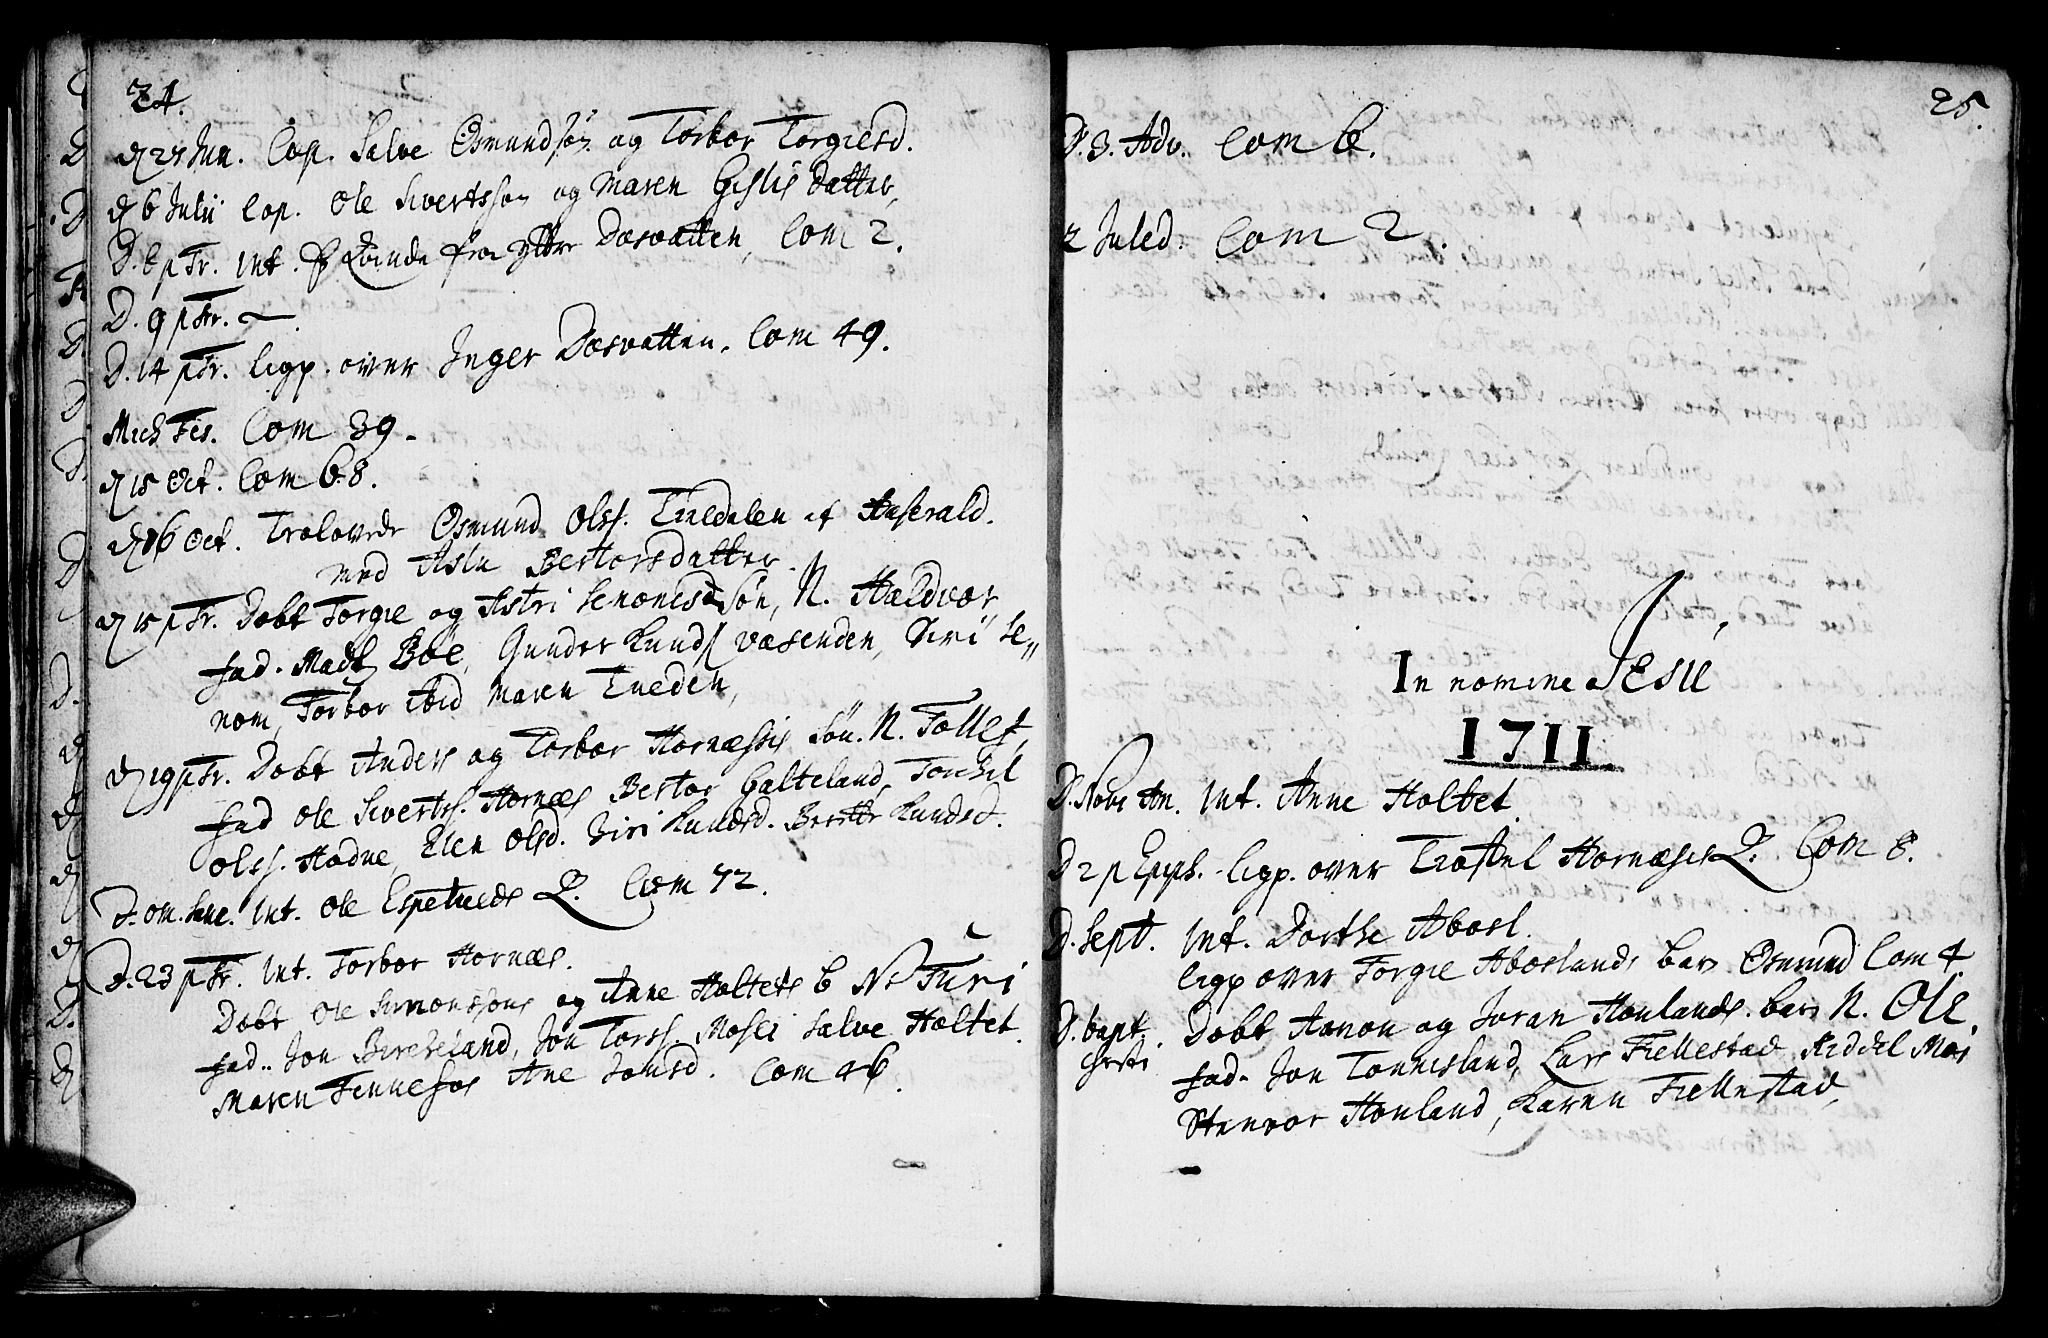 24.
D 27 Jun. Cop. Salve Osmundsøn og Torbor Torgiesd.
D 6 Julii Cop. Ole Sivertsson og Maren Gislis datter,
D. 6 p Tr. Int. Qvinde fra yttre Dæsvatten, Com 2.
D. 9 p Tr. ~
D. 14 p Tr. ligp. over Inger Dæsvatten. Com 49.
Mich Fes. Com 39.
D 15 Oct. Com 68.
D 16 Oct. Trolovede Osmund Olss. Tvedalen af Haserald.
med Aslu Bertorsdatter.
D 15 p Tr. Dobt Torgie og Astri Senomsd Søn, N. Haldvor,
fad. Madtz Böe, Gunder Knuds Væsenden, Siri Se„
nom, Torbor ibid Maren Tveden,
D 19 p Tr. Dobt Anders og Torbor Hornæssis Søn. N. Tollef,
fad Ole Sivertss. Hornæs Bertor Galteland, Torkil
Olss. Hodne, Elen Olsd. Siri Knudsd. Beritte Knudsd.
D. om. sanc. Int. Ole Espetveds Q. Com 72.
D. 23 p Tr. Int. Torbor Hornæs.
Dobt Ole Simonssøns og Anne Holtets b N. Turi
fad.. Jon Birkeland, Jon Torss. Mosei Salve Holtet.
Maren Fennefos Ane Jonsd. Com 46.
25.
D. 3. Adv. Com 6.
2 Juled. Com 2.
In nomine Jesu
1711.
D. Nov. An. Int. Anne Holtet.
D 2 p Epph. ligp. over Trostel Hornæses Q. Com 8.
D. Sept. Int. Dorthe Abosl.
ligp over Torgie Aboslands barn Osmund Com 4.
D. bapt. Dobt Aanon og Joran Honlands. barn N. Ole,
Christi fad. Jon Tonnisland, Lars Fiellestad Keddel Moi
Stenvor Honland, Karen Fiellestad,